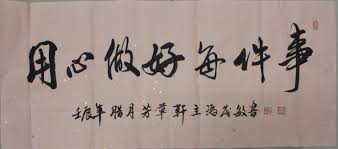 用心做好每件事
壬辰年腊月芳草轩主冯茂敏书